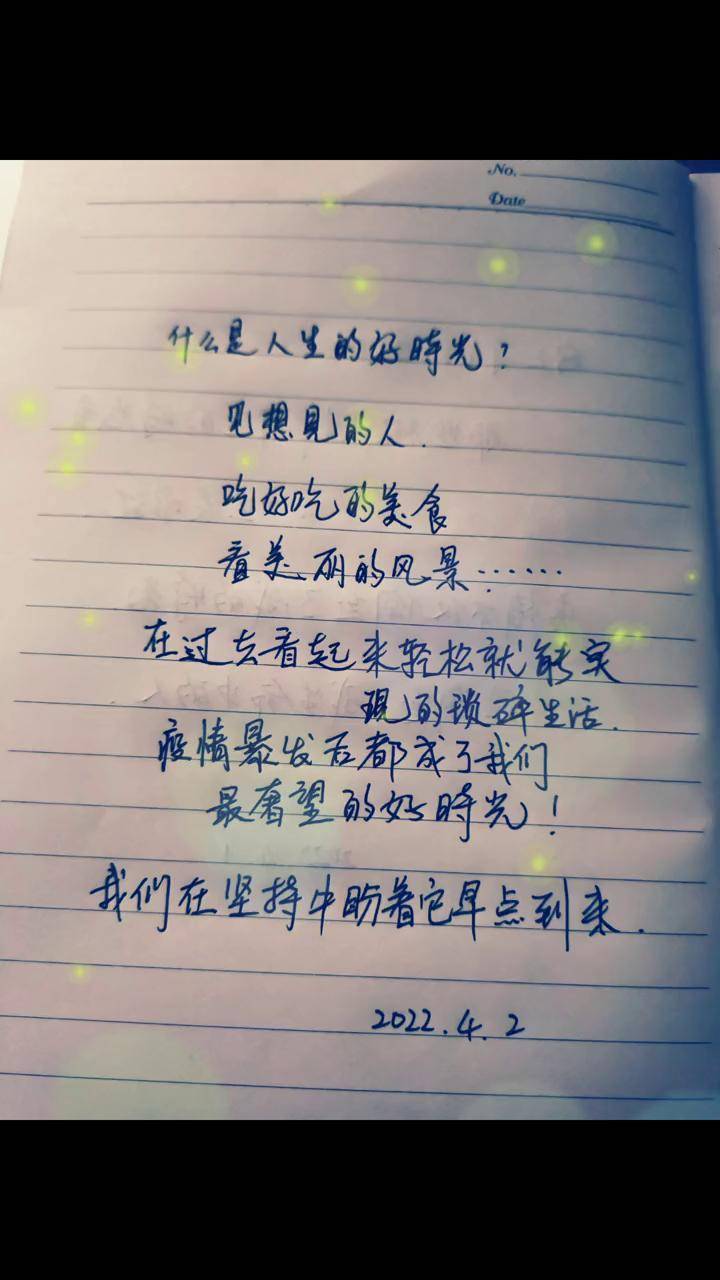 No.
Date
什么是人生的好時光?
见想見的人.
吃好吃的美食
看美丽的风景......
在过去看起来轻松就能实
現的琐碎生活.
疫情暴发后都成了我们
最奢望的好時光!
我们在坚持中盼着它早点到来.
2022.4.2